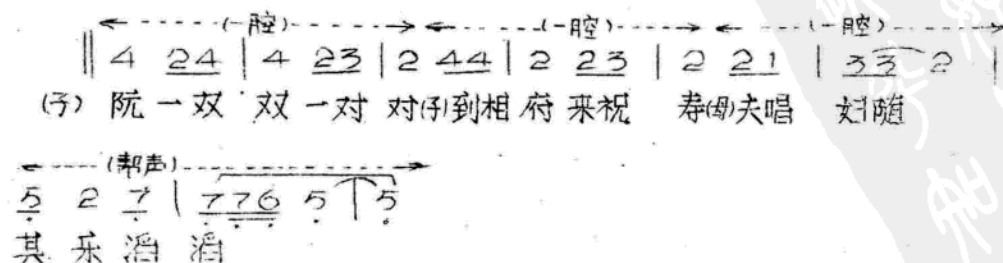 (一腔) (一腔) (一腔)
‖ 4 24 | 4 23 | 2 44 | 2 23 | 2 21 | 33 2 |
(子) 阮一双 双一对 对(子)到相府来祝 寿(母)夫唱 妇随
(帮声)
5 2 7 | 776 5 | 5
其乐滔滔